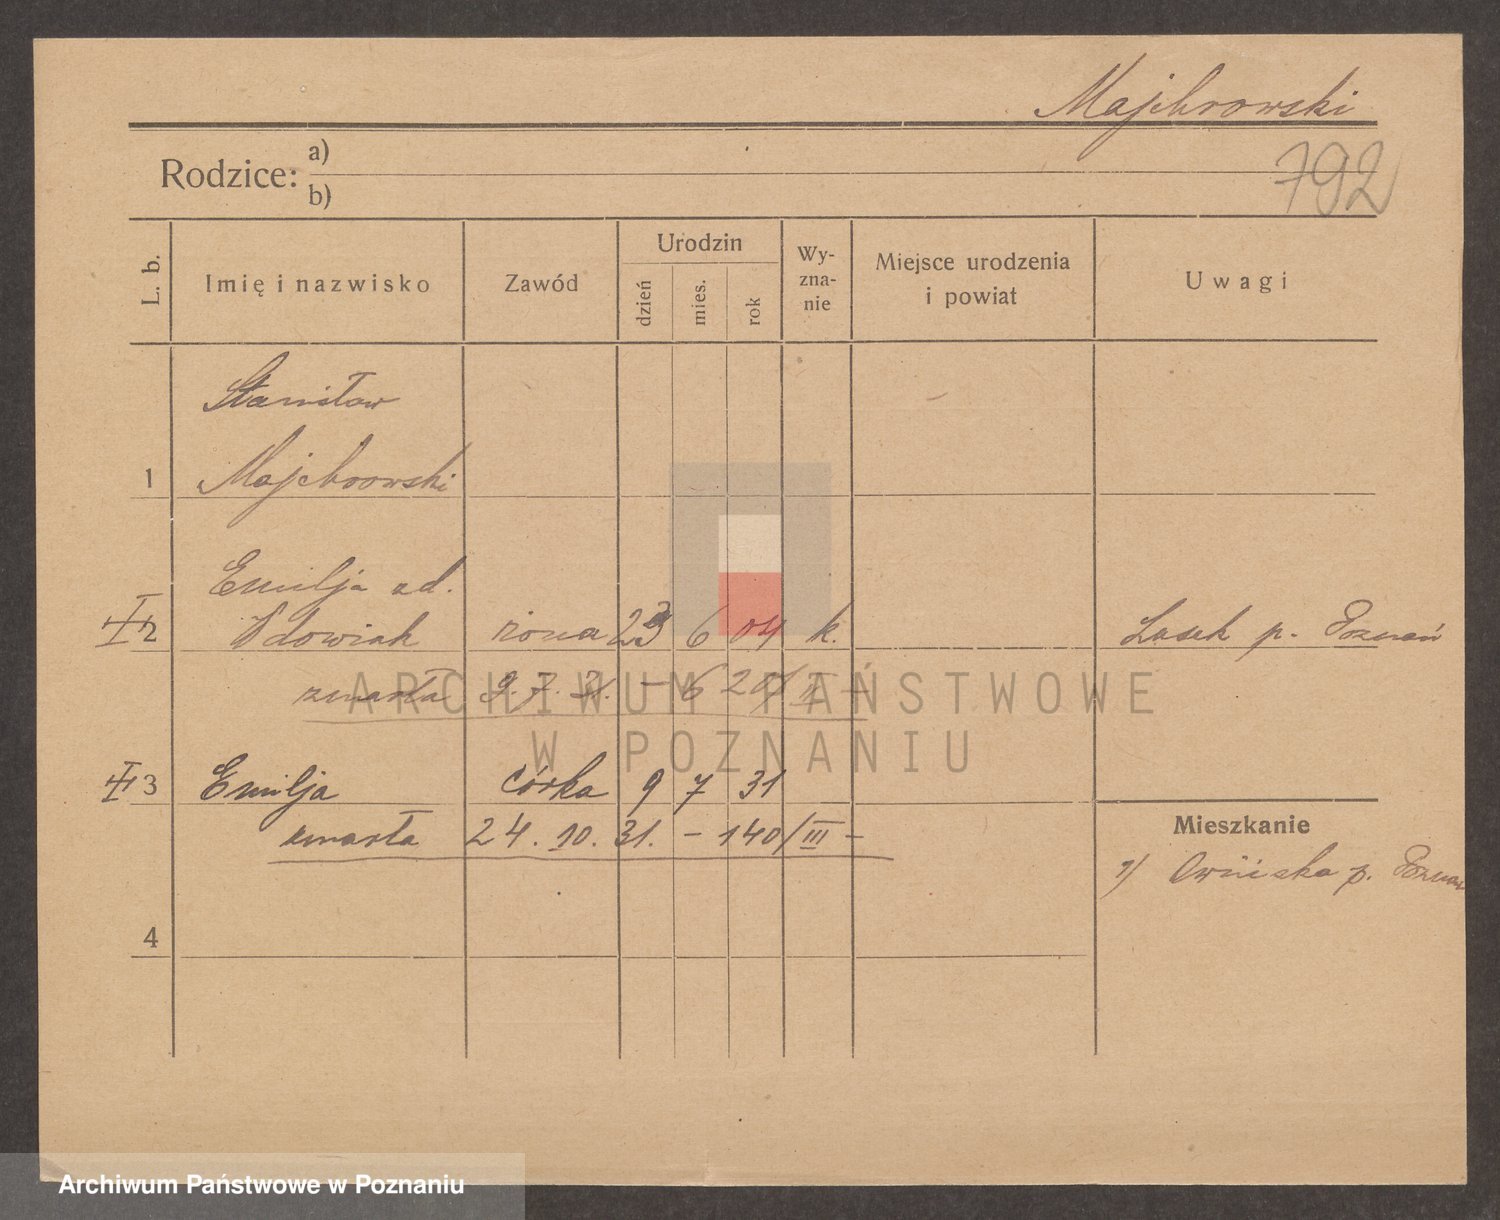 Majchrowski
792
Rodzice: a)
b)
L. b.
Imię i nazwisko
Zawód
Urodzin
dzień
mies.
rok
Wy-
zna-
nie
Miejsce urodzenia
i powiat
Uwagi
Stanisław
1 Majchrowski
Emilja zd.
2 Wdowiak żona 23 6 04 k. Lasek p. Poznań
zmarła 9. 7. 31. – 6 20/II –
ARCHIWUM PAŃSTWOWE
W POZNANIU
3 Emilja córka 9 7 31
zmarła 24. 10. 31. – 140/III –
Mieszkanie
1) Owińska p. Poznań
4
Archiwum Państwowe w Poznaniu